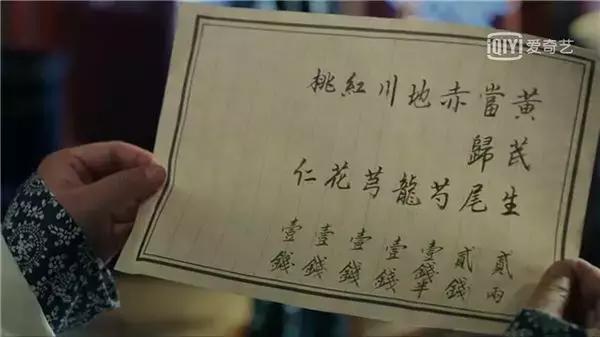 黃芪生 貳兩
當歸尾 貳錢
赤芍 壹錢半
地龍 壹錢
川芎 壹錢
紅花 壹錢
桃仁 壹錢
iQIYI 爱奇艺